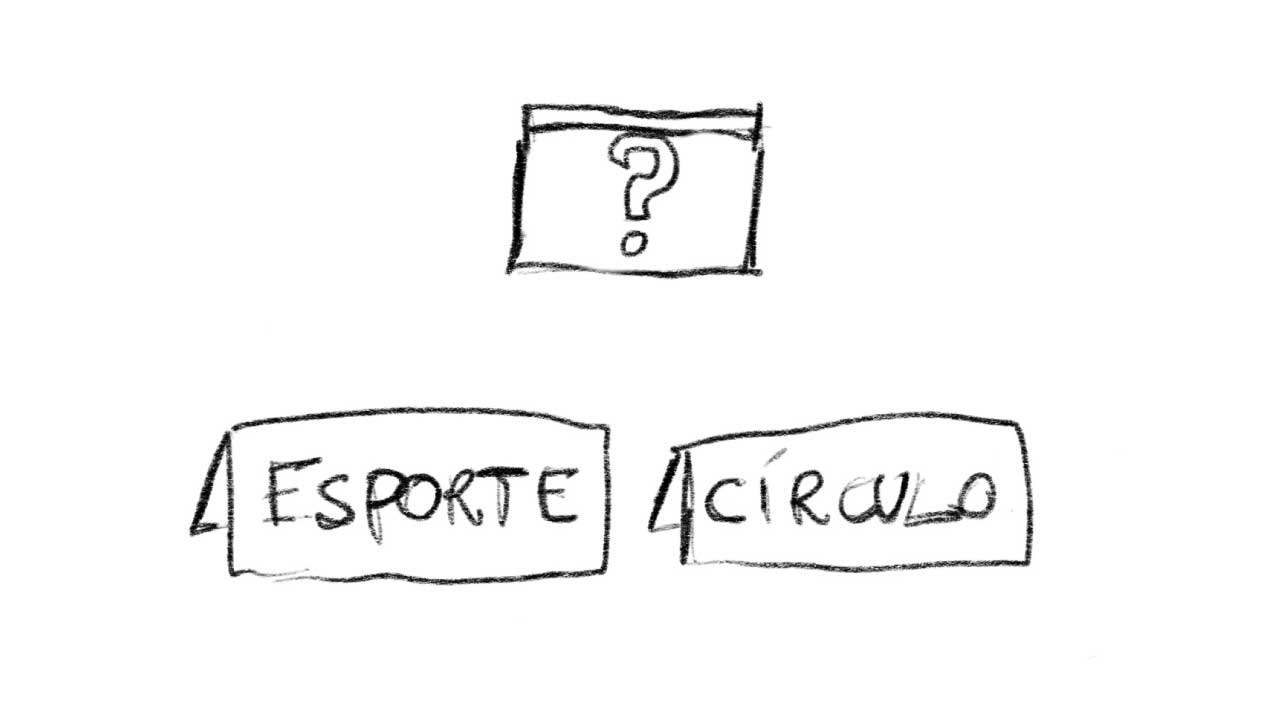 ?
ESPORTE CÍRCULO